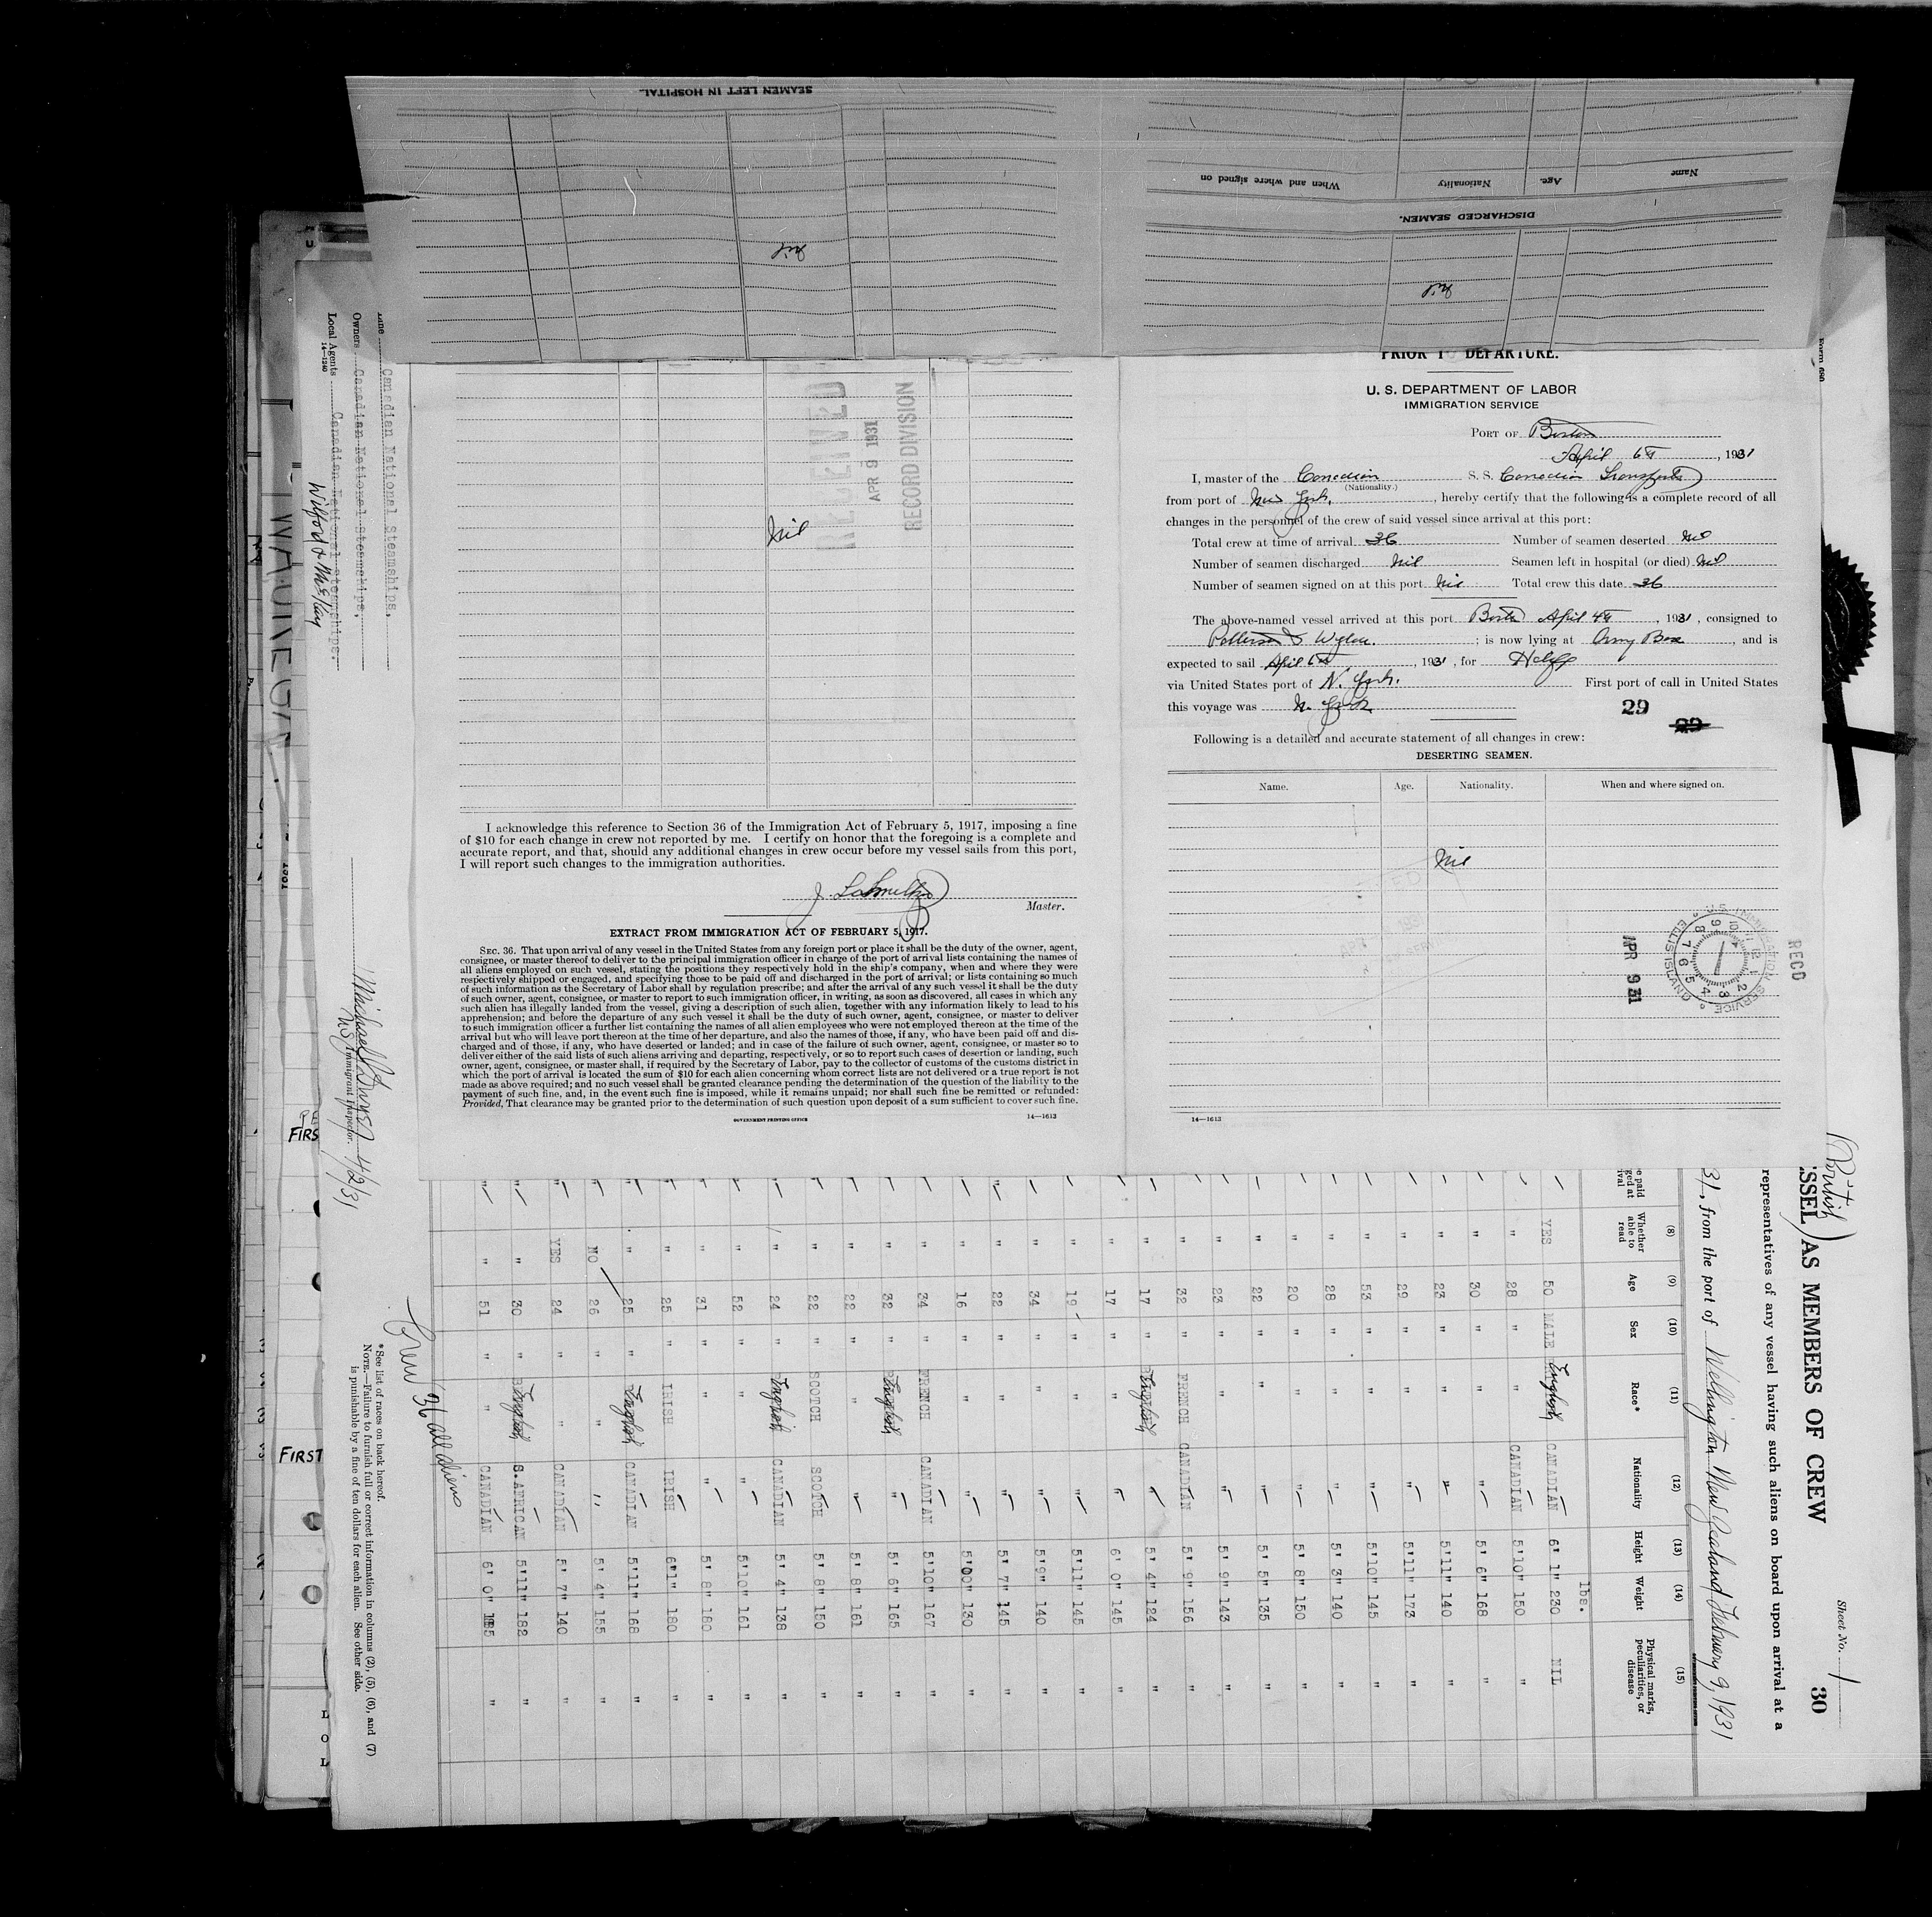 SEAMEN LEFT IN HOSPITAL.
Nil
Name
Age.
Nationality
When and where signed on
DISCHARGED SEAMEN.
Nil
PRIOR TO DEPARTURE.
U. S. DEPARTMENT OF LABOR
IMMIGRATION SERVICE
PORT OF Boston
April 6th, 1931
I, master of the Canadian S. S. Canadian Transporter
(Nationality.)
from port of New York, hereby certify that the following is a complete record of all
changes in the personnel of the crew of said vessel since arrival at this port:
Total crew at time of arrival 36 Number of seamen deserted Nil
Number of seamen discharged Nil Seamen left in hospital (or died) Nil
Number of seamen signed on at this port Nil Total crew this date 36
The above-named vessel arrived at this port Boston April 4th, 1931, consigned to
Patterson & Wylde. ; is now lying at Army Base, and is
expected to sail April 6th, 1931, for Halifax
via United States port of N. York. First port of call in United States
this voyage was N. York
29
29
Following is a detailed and accurate statement of all changes in crew:
DESERTING SEAMEN.
Name. Age. Nationality. When and where signed on.
Nil
U.S. IMMIGRATION SERVICE
ELLIS ISLAND
APR 9 31
RECD
14—1613
RECEIVED
APR 9 1931
RECORD DIVISION
Nil
I acknowledge this reference to Section 36 of the Immigration Act of February 5, 1917, imposing a fine
of $10 for each change in crew not reported by me. I certify on honor that the foregoing is a complete and
accurate report, and that, should any additional changes in crew occur before my vessel sails from this port,
I will report such changes to the immigration authorities.
Master.
EXTRACT FROM IMMIGRATION ACT OF FEBRUARY 5, 1917.
SEC. 36. That upon arrival of any vessel in the United States from any foreign port or place it shall be the duty of the owner, agent,
consignee, or master thereof to deliver to the principal immigration officer in charge of the port of arrival lists containing the names of
all aliens employed on such vessel, stating the positions they respectively hold in the ship's company, when and where they were
respectively shipped or engaged, and specifying those to be paid off and discharged in the port of arrival; or lists containing so much
of such information as the Secretary of Labor shall by regulation prescribe; and after the arrival of any such vessel it shall be the duty
of such owner, agent, consignee, or master to report to such immigration officer, in writing, as soon as discovered, all cases in which any
such alien has illegally landed from the vessel, giving a description of such alien, together with any information likely to lead to his
apprehension; and before the departure of any such vessel it shall be the duty of such owner, agent, consignee, or master to deliver
to such immigration officer a further list containing the names of all alien employees who were not employed thereon at the time of the
arrival but who will leave port thereon at the time of her departure, and also the names of those, if any, who have been paid off and dis-
charged and of those, if any, who have deserted or landed; and in case of the failure of such owner, agent, consignee, or master so to
deliver either of the said lists of such aliens arriving and departing, respectively, or so to report such cases of desertion or landing, such
owner, agent, consignee, or master shall, if required by the Secretary of Labor, pay to the collector of customs of the customs district in
which the port of arrival is located the sum of $10 for each alien concerning whom correct lists are not delivered or a true report is not
made as above required; and no such vessel shall be granted clearance pending the determination of the question of the liability to the
payment of such fine, and, in the event such fine is imposed, while it remains unpaid; nor shall such fine be remitted or refunded:
Provided, That clearance may be granted prior to the determination of such question upon deposit of a sum sufficient to cover such fine.
GOVERNMENT PRINTING OFFICE
14—1613
Sheet No. 1
30
(British)
SSEL) AS MEMBERS OF CREW
representatives of any vessel having such aliens on board upon arrival at a
31, from the port of Wellington New Zealand February 9, 1931
(8) (9) (10) (11) (12) (13) (14) (15)
Whether able to read Age Sex Race* Nationality Height Weight Physical marks, peculiarities, or disease
lbs.
YES 50 MALE English CANADIAN 6' 1" 230 NIL
" 28 " " CANADIAN 5'10" 150 "
" 30 " " " 5' 6" 168 "
" 23 " " " 5'11" 140 "
" 29 " " " 5'11" 173 "
" 53 " " " 5'10" 145 "
" 28 " " " 5' 3" 140 "
" 20 " " " 5' 8" 150 "
" 22 " " " 5' 5" 135 "
" 23 " " " 5' 9" 143 "
" 32 " FRENCH CANADIAN 5' 9" 156 "
" 17 " English " 5' 4" 124 "
" 17 " " " 6' 0" 145 "
" 19 " " " 5'11" 145 "
" 34 " " " 5'9" 140 "
" 22 " " " 5' 7" 145 "
" 16 " " " 5'00" 130 "
" 34 " FRENCH CANADIAN 5'10" 167 "
" 32 " English " 5' 6" 165 "
" 22 " " " 5' 8" 161 "
" 22 " SCOTCH SCOTCH 5' 8" 150 "
" 24 " English CANADIAN 5' 4" 138 "
" 52 " " " 5'10" 161 "
" 31 " " " 5' 8" 180 "
" 25 " IRISH IRISH 6'1" 180 "
" 25 " English CANADIAN 5'11" 168 "
NO 26 " " " 5' 4" 155 "
YES 24 " " CANADIAN 5' 7" 140 "
" 30 " English S.AFRICAN 5'11" 182 "
" 51 " " CANADIAN 6' 0" "
Crew 36 all aliens
*See list of races on back hereof.
NOTE.—Failure to furnish full or correct information in columns (2), (5), (6), and (7)
is punishable by a fine of ten dollars for each alien. See other side.
Line Canadian National Steamships.
Owners Canadian National Steamships.
Local Agents Canadian National Steamships.
14—1240
Immigrant Inspector.
4/2/31
FIRS
FIRST